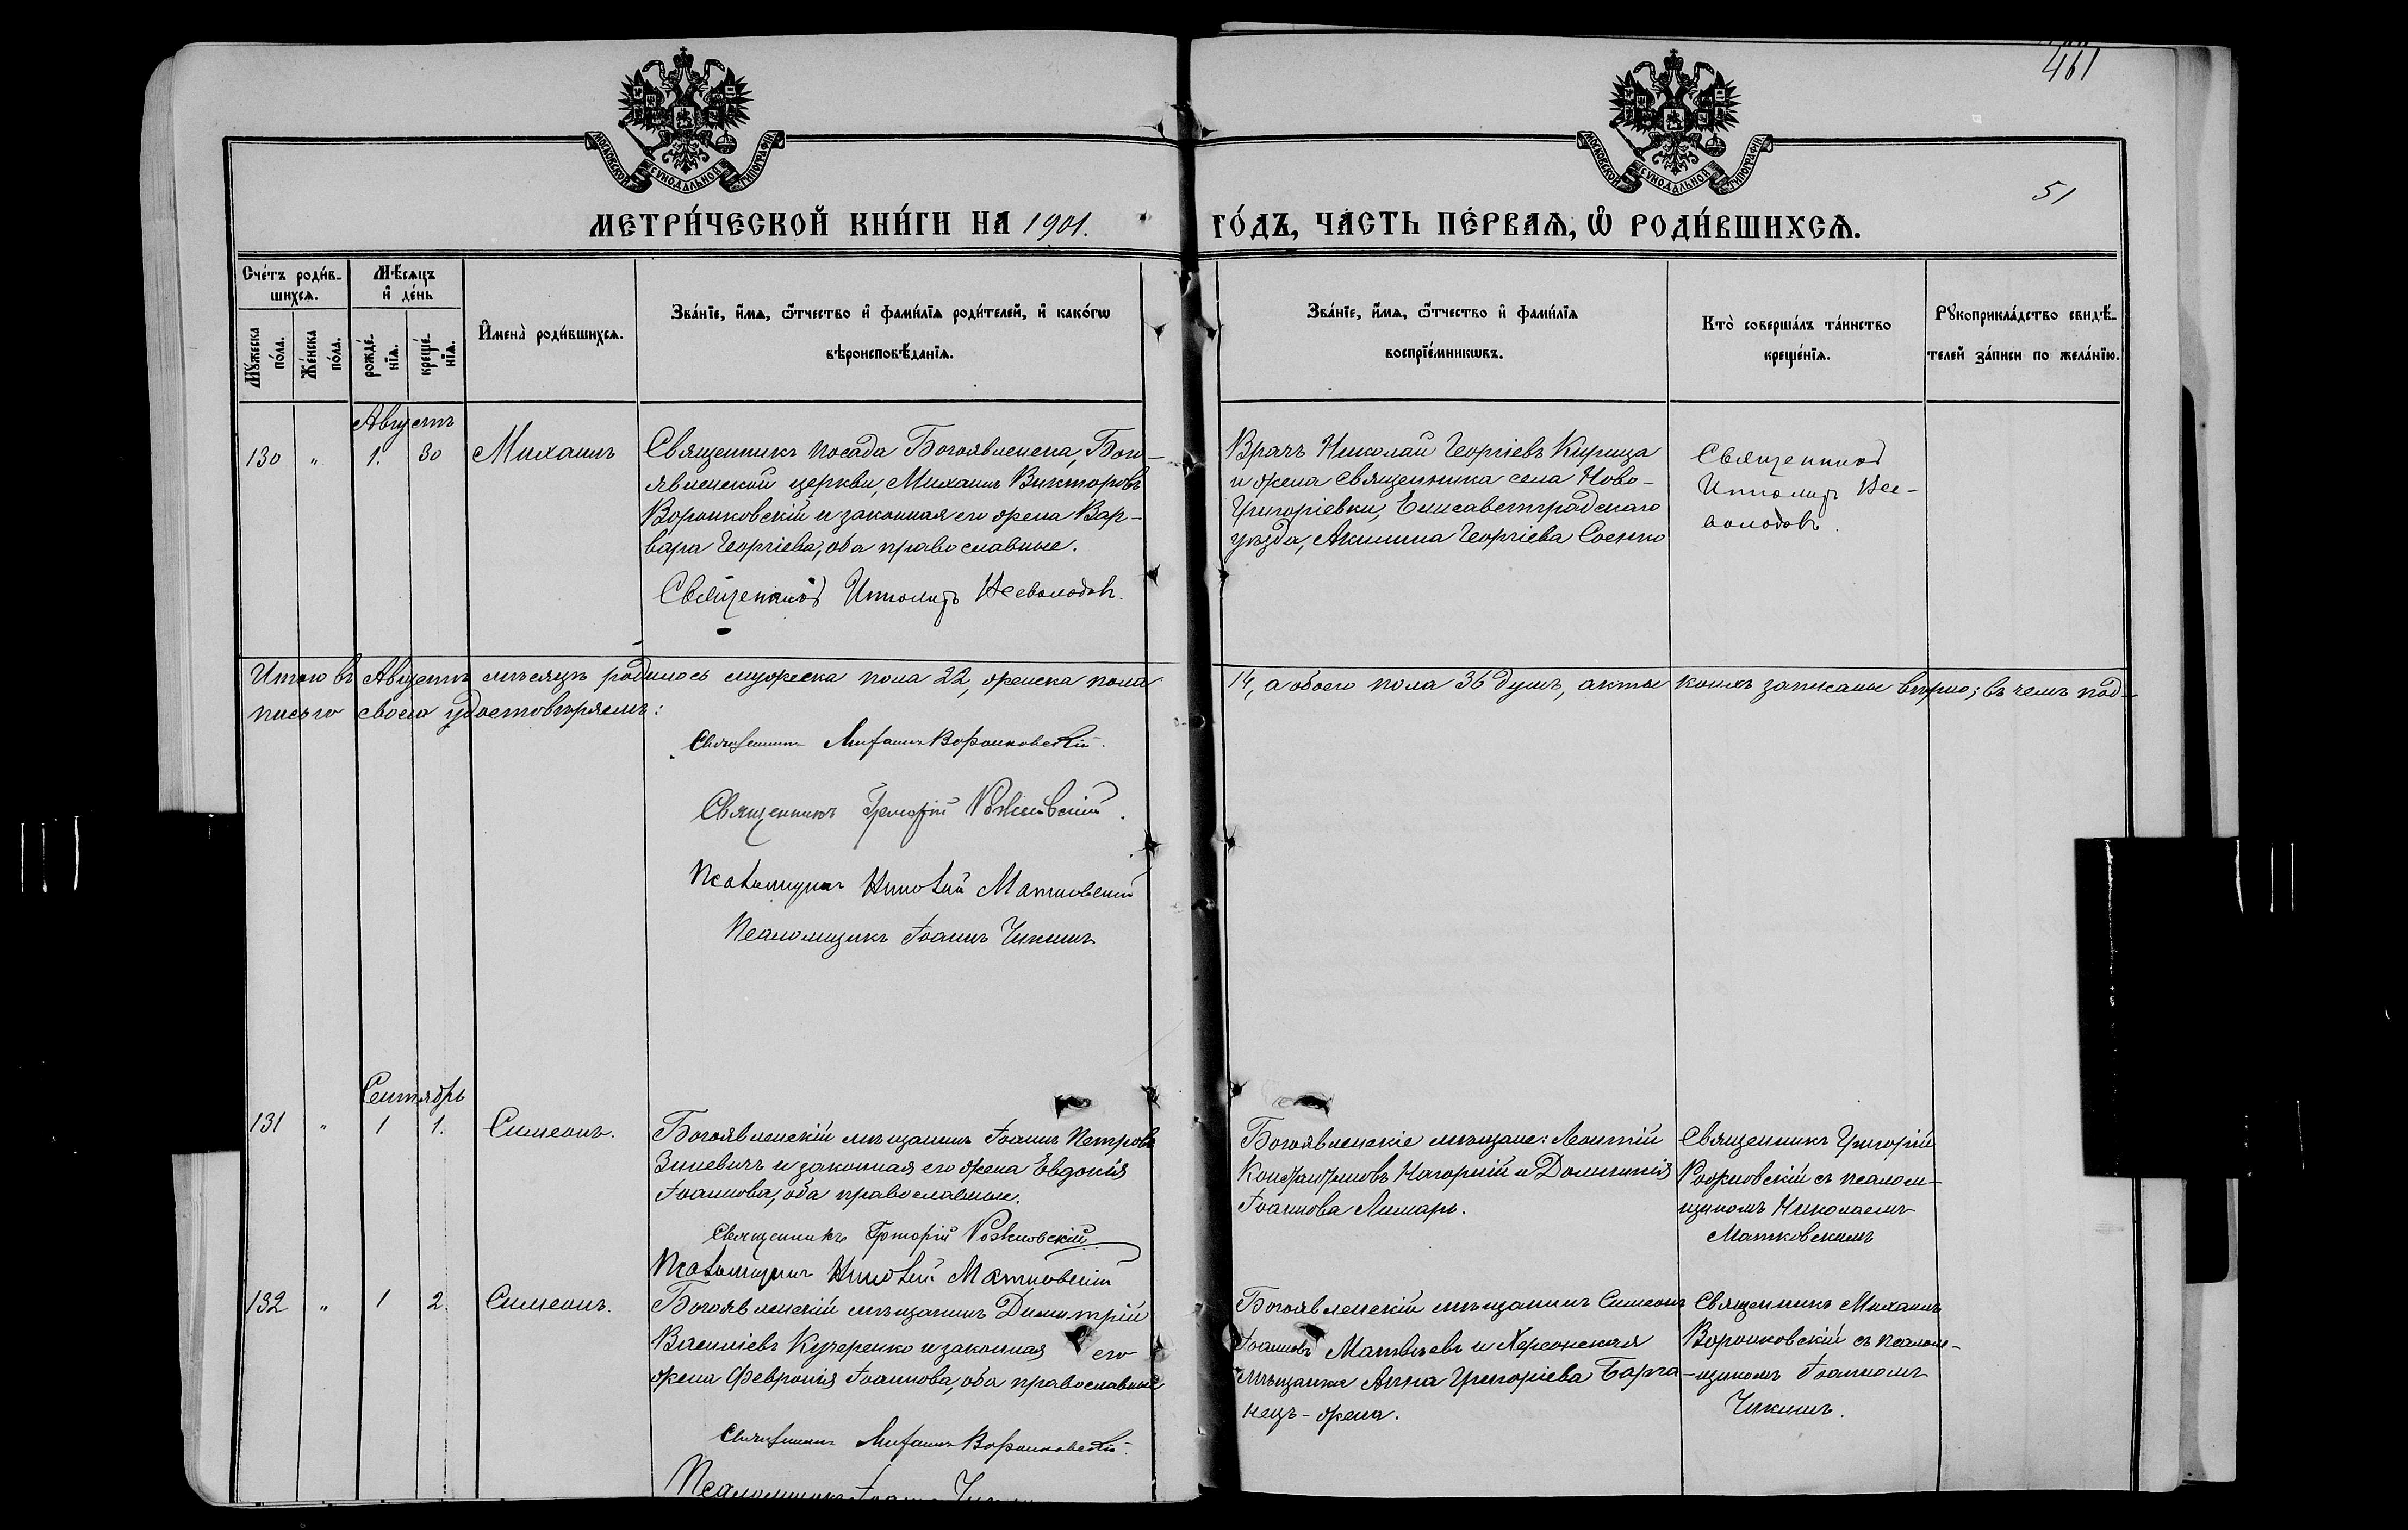 461
51
МОСКОВСКОЙ СѴНОДАЛЬНОЙ ТИПОГРАФІИ
МОСКОВСКОЙ СѴНОДАЛЬНОЙ ТИПОГРАФІИ
МЕТРИ́ЧЕСКОЙ КНИ́ГИ НА 1901. ГО́ДЪ, ЧА́СТЬ ПЕ́РВАѦ, Ѡ҆ РОДИ́ВШИХСѦ.
Сче́тъ роди́в-
шихсѧ.
Мѣ́сѧцъ
и҆ де́нь
Мꙋ́жеска по́ла.
Же́нска по́ла.
рожде́-
нїѧ.
креще́-
нїѧ.
И҆мена̀ роди́вшихсѧ.
Зва́нїе, и҆́мѧ, ѻ҆́тчество и҆ фами́лїѧ роди́телей, и҆ како́гѡ
вѣроисповѣ́данїѧ.
Зва́нїе, и҆́мѧ, ѻ҆́тчество и҆ фами́лїѧ
воспрїе́мникѡвъ.
Кто̀ соверша́лъ та́инство
креще́нїѧ.
Рꙋкоприкла́дство свидѣ́-
телей за́писи по жела́нїю.
Августъ
130 " 1. 30 Михаилъ
Священникъ посада Богоявленска, Бого-
явленской церкви, Михаилъ Викторовъ
Воронковскій и законная его жена Вар-
вара Георгіева, оба православные.
Священникъ Ипполитъ Всеволодовъ.
Врачъ Николай Георгіевъ Кирица
и жена священника села Ново-
Григоріевки, Елисаветградскаго
уѣзда, Акилина Георгіева Соенко
Священникъ
Ипполитъ Все-
володовъ.
Итого въ Августѣ мѣсяцѣ родилось мужеска пола 22, женска пола 14, а обоего пола 36 душъ, акты коихъ записаны вѣрно; въ чемъ под-
писью своею удостовѣряемъ:
Священникъ Михаилъ Воронковскій.
Священникъ Григорій Рожновскій.
Псаломщикъ Николай Матковскій
Псаломщикъ Іоаннъ Чикинъ
Сентябрь
131 " 1 1. Симеонъ.
Богоявленскій мѣщанинъ Іоаннъ Петровъ
Зиневичъ и законная его жена Евдокія
Іоаннова, оба православные.
Священникъ Григорій Рожновскій
Псаломщикъ Николай Матковскій
Богоявленскіе мѣщане: Леонтій
Константиновъ Нагорній и Домникія
Іоаннова Лимарь.
Священникъ Григорій
Рожновскій съ псалом-
щикомъ Николаемъ
Матковскимъ
132 " 1 2. Симеонъ.
Богоявленскій мѣщанинъ Димитрій
Василіевъ Кучеренко и законная его
жена Февронія Іоаннова, оба православные
Священникъ Михаилъ Воронковскій.
Псаломщикъ Іоаннъ Чикинъ
Богоявленскій мѣщанинъ Симеонъ
Іоанновъ Матвѣевъ и Херсонская
мѣщанка Анна Григоріева
жена.
Священникъ Михаилъ
Воронковскій съ псалом-
щикомъ Іоанномъ
Чикинъ.